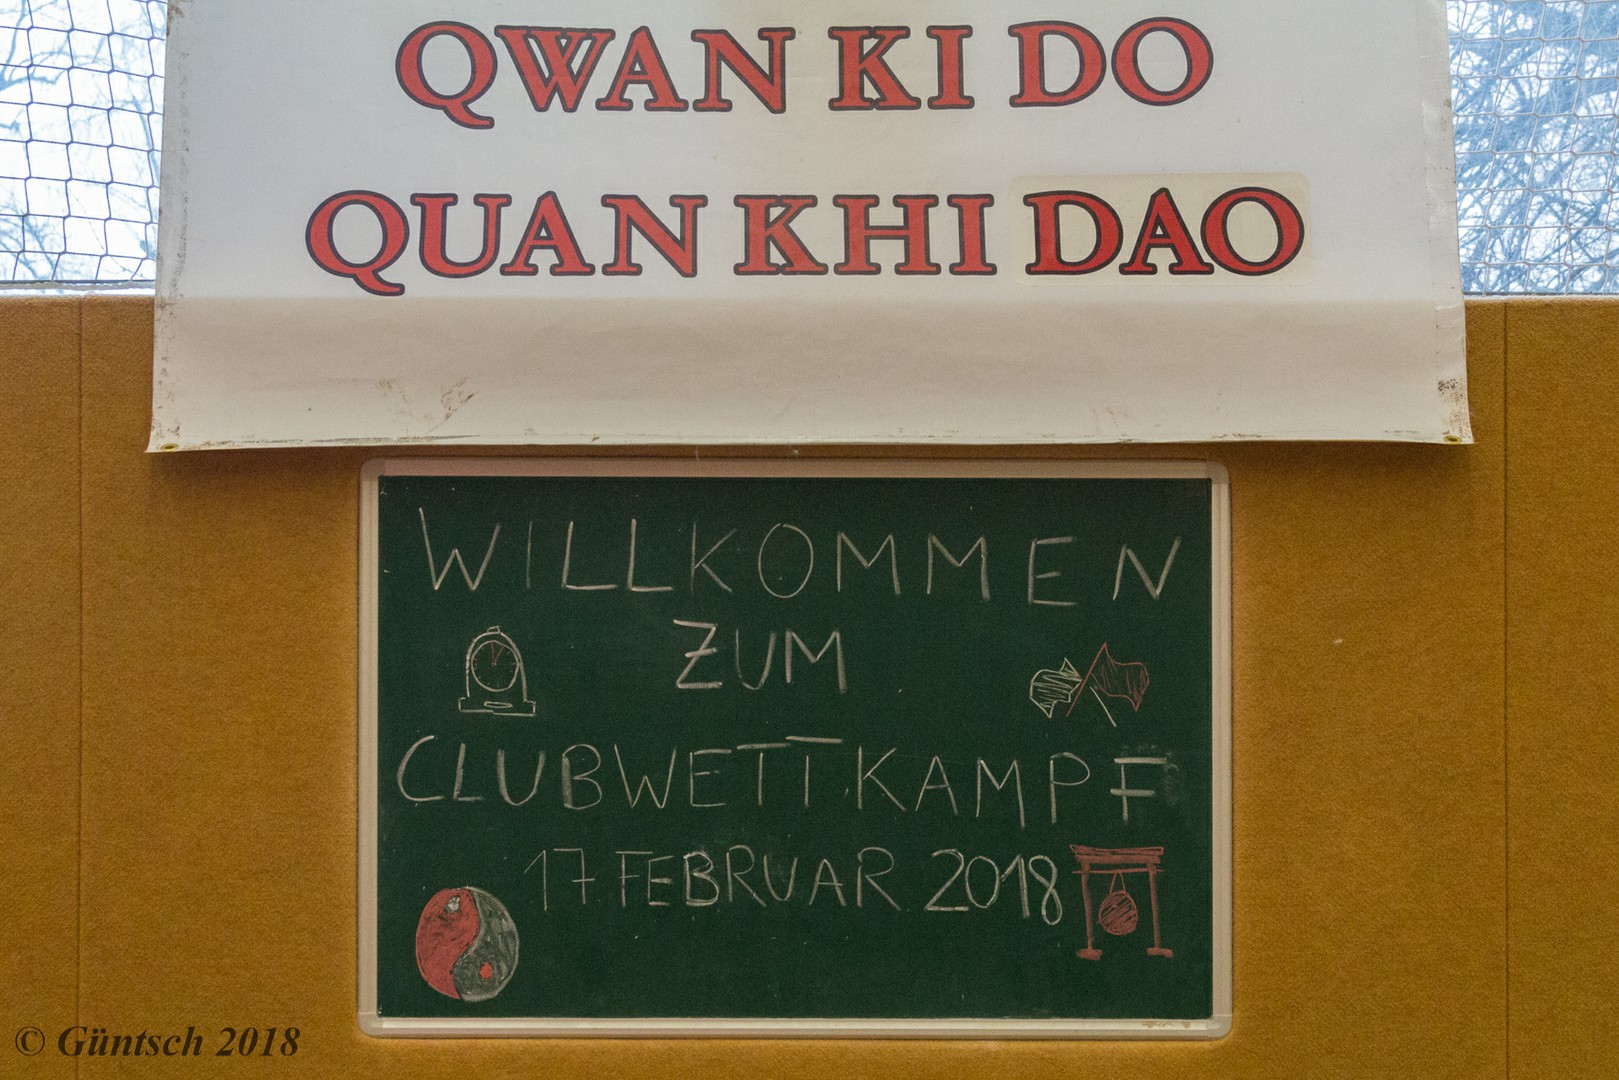 QWAN KI DO
QUAN KHI DAO
WILLKOMMEN
ZUM
CLUBWETTKAMPF
17. FEBRUAR 2018
© Güntsch 2018